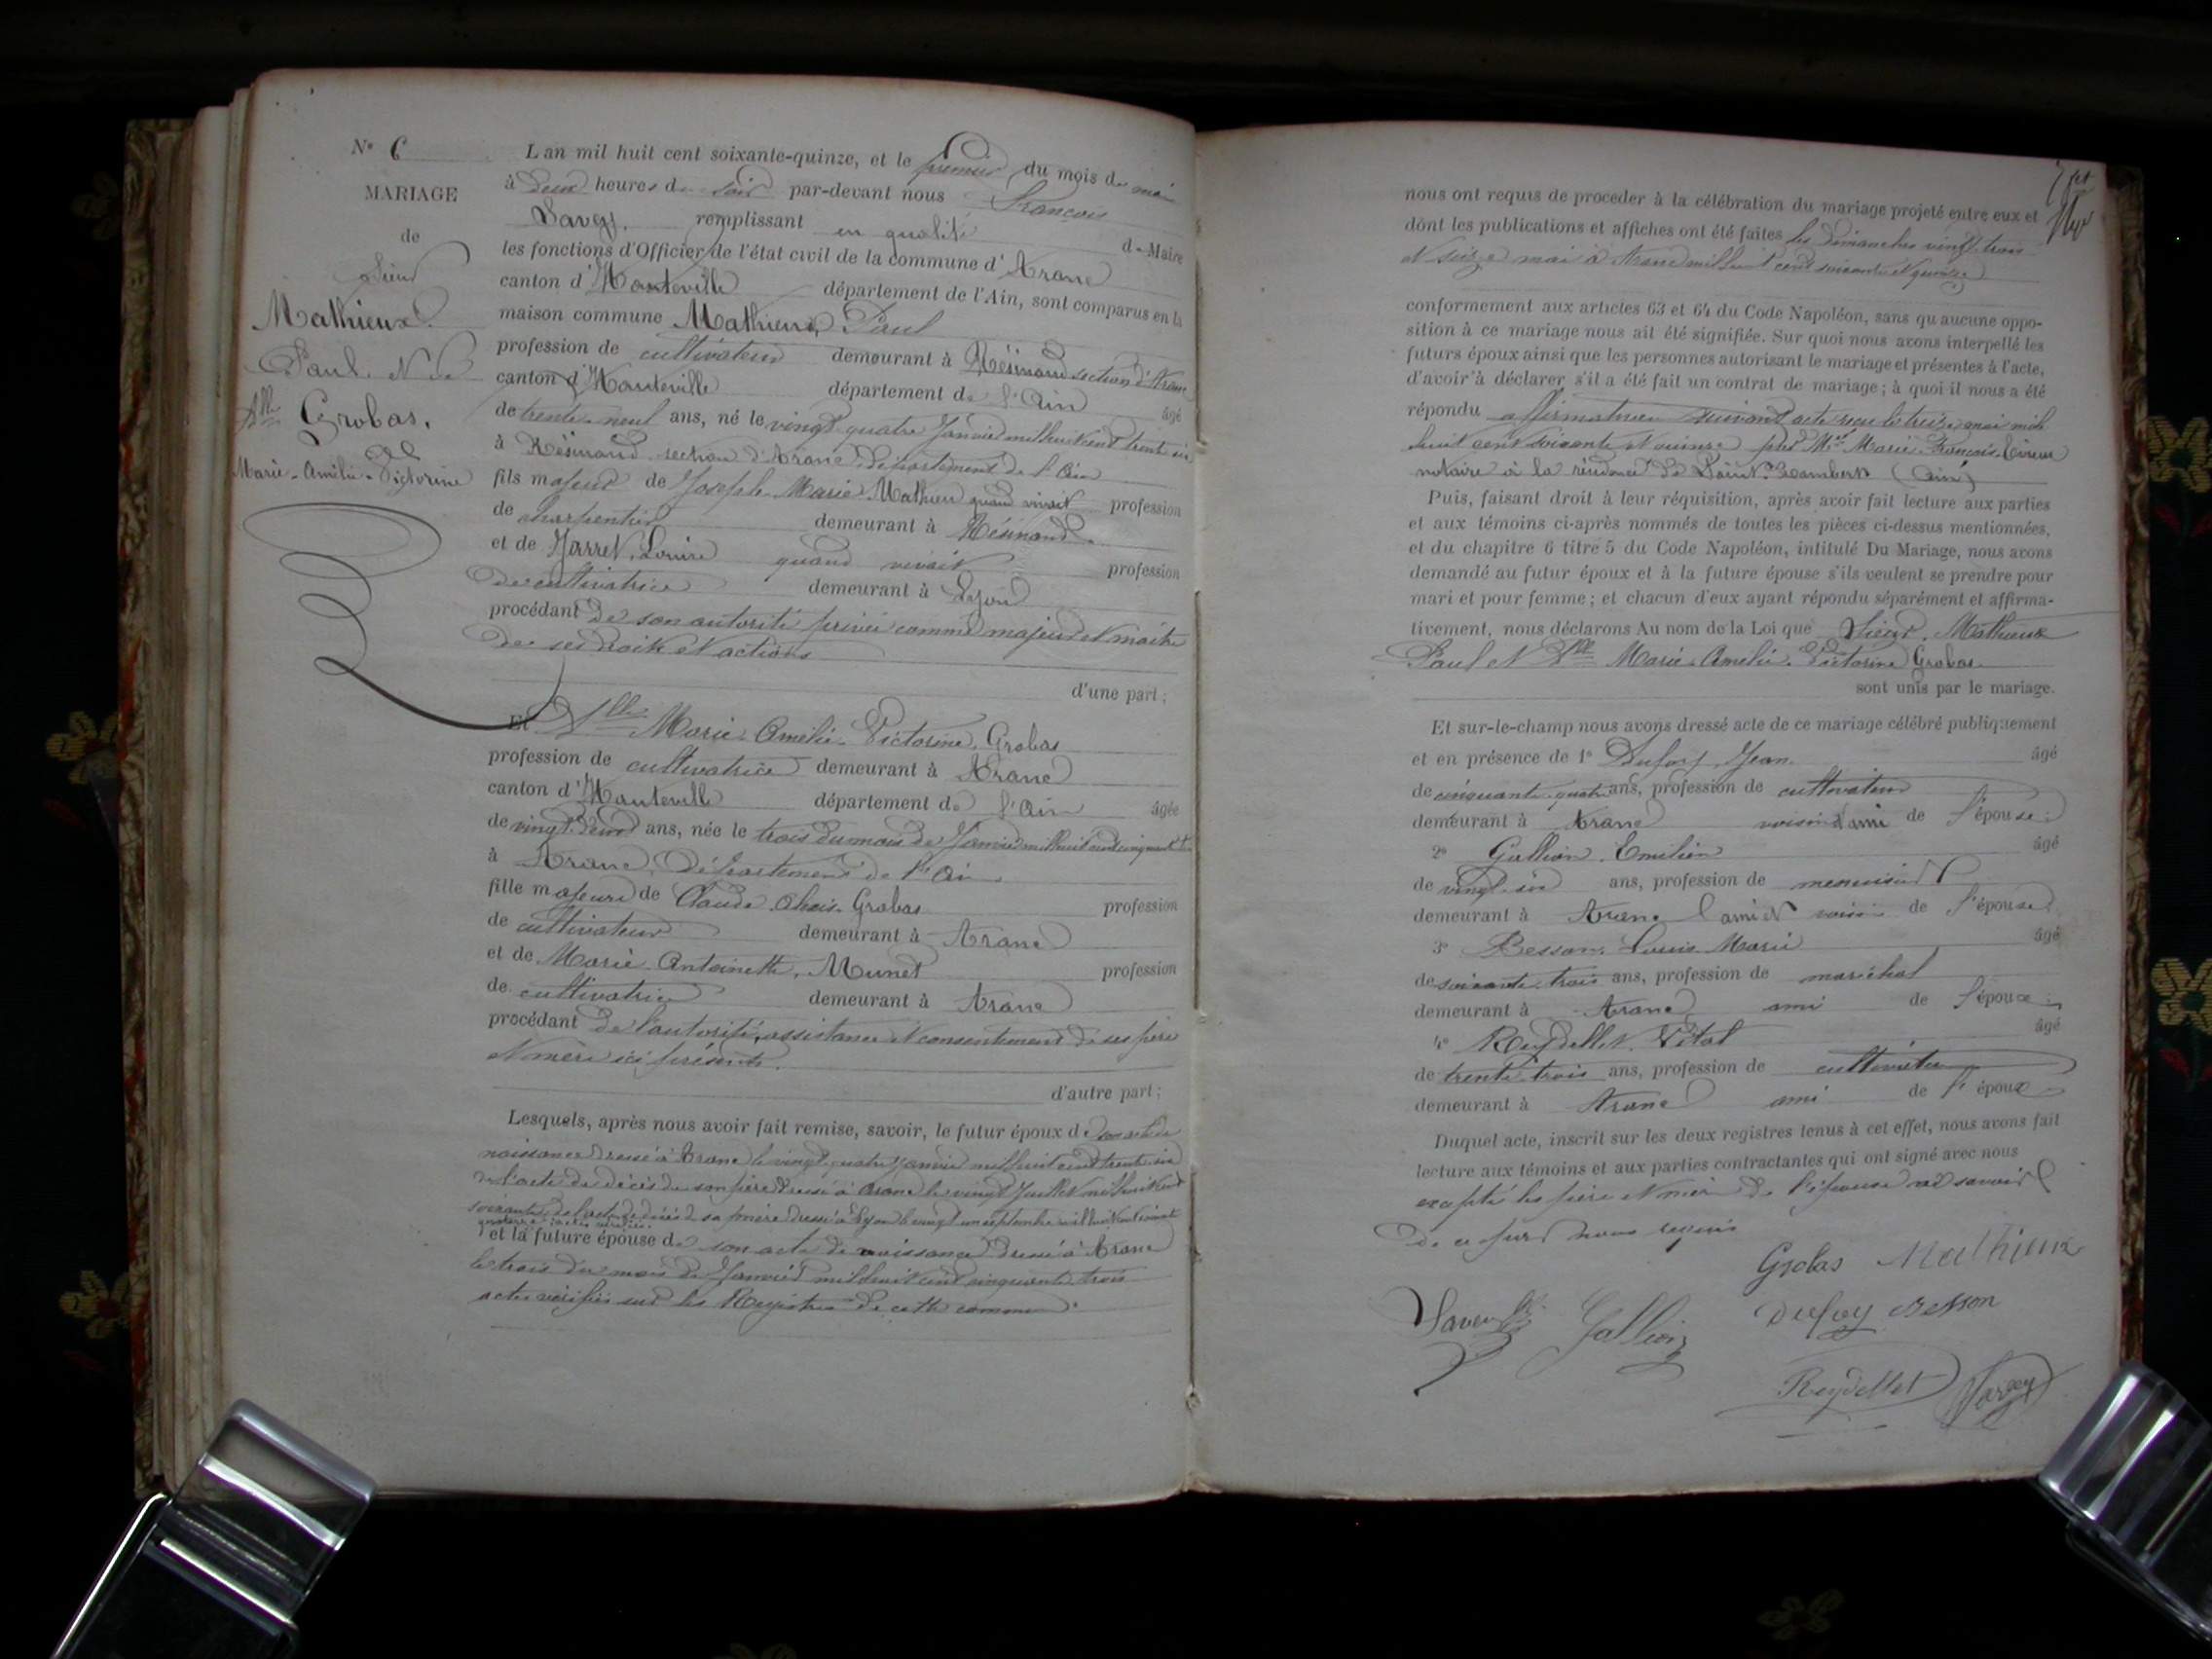 N° 6
MARIAGE
de
Sieur
Mathieux
Paul et de
Dlle Grobas,
Marie-Amélie-Victorine
L'an mil huit cent soixante-quinze, et le premier du mois de
à deux heures du soir par-devant nous François
Savey, remplissant en qualité de Maire
les fonctions d'Officier de l'état civil de la commune d'Arane
canton d'Hauteville département de l'Ain, sont comparus en la
maison commune Mathieux, Paul
profession de cultivateur demeurant à Résinand section d'Arane
canton d'Hauteville département de l'Ain âgé
de trente-neuf ans, né le vingt quatre Janvier mil huit cent trente six
à Résinand section d'Arane, département de l'Ain
fils majeur de Joseph-Marie Mathieu quand vivait profession
de charpentier demeurant à Résinand
et de Jarret, Louise quand vivait profession
de cultivatrice demeurant à Lyon
procédant de son autorité privée comme majeur et maître
de ses droits et actions
d'une part;
Et Dlle Marie-Amélie-Victorine, Grobas
profession de cultivatrice demeurant à Arane
canton d'Hauteville département de l'Ain âgée
de vingt-deux ans, née le trois du mois de Janvier mil huit cent cinquante trois
à Arane, Département de l'Ain
fille majeure de Claude Grobas profession
de cultivateur demeurant à Arane
et de Marie-Antoinette, Munet profession
de cultivatrice demeurant à Arane
procédant de l'autorité, assistance et consentement de ses père
et mère ici présents.
d'autre part;
Lesquels, après nous avoir fait remise, savoir, le futur époux de son acte de
naissance dressé à Arane le vingt quatre Janvier mil huit cent trente six
de l'acte de décès de son père dressé à Arane le vingt Juillet mil huit cent
soixante, de l'acte de décès de sa mère dressé à Lyon le vingt un septembre mil huit cent soixante
et la future épouse de son acte de naissance dressé à Arane
le trois du mois de Janvier mil huit cent cinquante trois
actes vérifiés sur les Registres de cette commune.
nous ont requis de proceder à la célébration du mariage projeté entre eux et
dont les publications et affiches ont été faites les dimanches vingt trois
et seize mai à Arane mil huit cent soixante et quinze
conformement aux articles 63 et 64 du Code Napoléon, sans qu'aucune oppo-
sition à ce mariage nous ait été signifiée. Sur quoi nous avons interpellé les
futurs époux ainsi que les personnes autorisant le mariage et présentes à l'acte,
d'avoir à déclarer s'il a été fait un contrat de mariage; à quoi il nous a été
répondu affirmativement suivant acte reçu le treize mai mil
huit cent soixante et quinze par Me Marie François
notaire à la résidence de Saint-Rambert (Ain)
Puis, faisant droit à leur réquisition, après avoir fait lecture aux parties
et aux témoins ci-après nommés de toutes les pièces ci-dessus mentionnées,
et du chapitre 6 titre 5 du Code Napoléon, intitulé Du Mariage, nous avons
demandé au futur époux et à la future épouse s'ils veulent se prendre pour
mari et pour femme; et chacun d'eux ayant répondu séparément et affirma-
tivement, nous déclarons Au nom de la Loi que Sieur, Mathieux
Paul et Dlle Marie-Amélie-Victorine Grobas
sont unis par le mariage.
Et sur-le-champ nous avons dressé acte de ce mariage célébré publiquement
et en présence de 1° Dufoy, Jean âgé
de cinquante quatre ans, profession de cultivateur
demeurant à Arane voisin d'ami de l'épouse;
2° Gallion, Emilien âgé
de vingt-six ans, profession de menuisier
demeurant à Arane ami et voisin de l'épouse
3° Besson, Louis-Marie âgé
de soixante trois ans, profession de maréchal
demeurant à Arane ami de l'époux;
4° Reydellet, Vital âgé
de trente-trois ans, profession de cultivateur
demeurant à Arane ami de l'époux
Duquel acte, inscrit sur les deux registres tenus à cet effet, nous avons fait
lecture aux témoins et aux parties contractantes qui ont signé avec nous
excepté les père et mère de l'épouse savoir
de ce fur nous requis
Grobas Mathieux
Gallion Dufoy Besson
Reydellet Savey